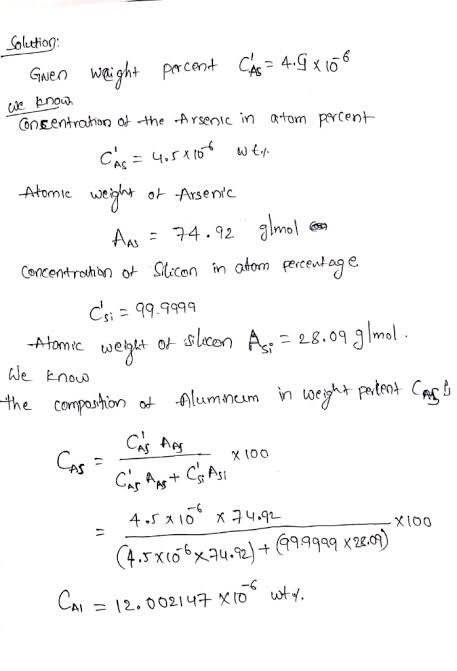 Solution:
Given weight percent C'As = 4.5 × 10^-6
we know
Concentration of the Arsenic in atom percent
C'As = 4.5 × 10^-6 wt%
Atomic weight of Arsenic
AAs = 74.92 g/mol
Concentration of Silicon in atom percentage
C'si = 99.9999
Atomic weight of silicon Asi = 28.09 g/mol.
We know
the composition of Aluminum in weight percent CAS is
CAS = C'AS AAS / (C'AS AAS + C'Si ASi) × 100
= 4.5 × 10^-6 × 74.92 / ((4.5 × 10^-6 × 74.92) + (99.9999 × 28.09)) × 100
CAl = 12.002147 × 10^-6 wt%.